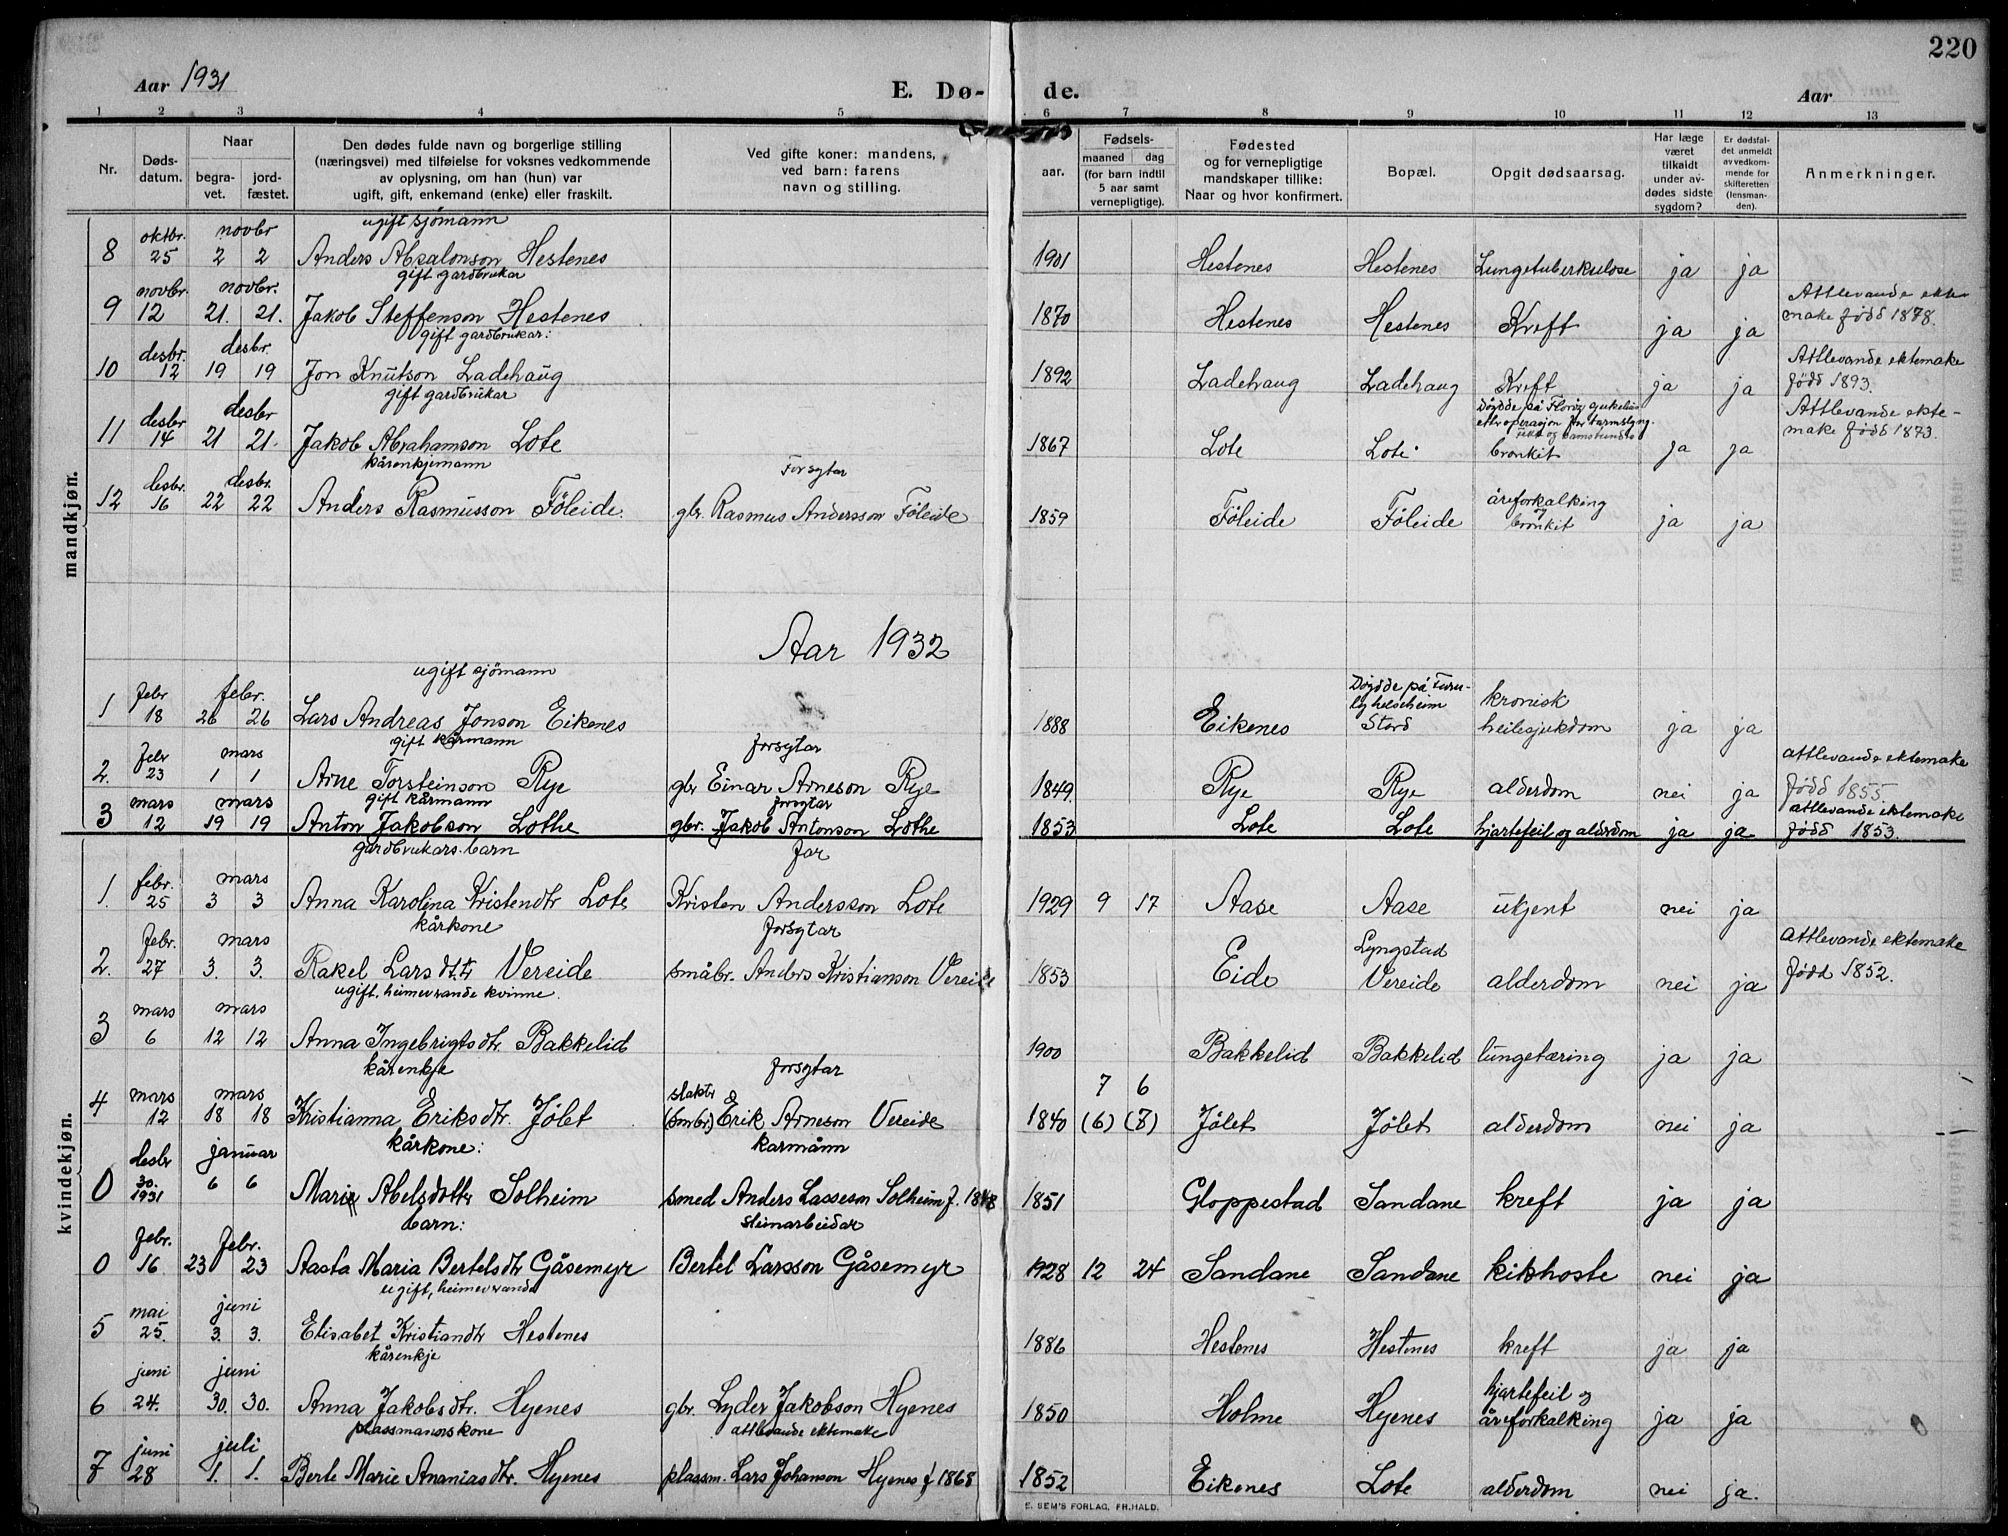 220
Aar 1931
E. Dø-
de.
Aar
1 2 3 4 5 6 7 8 9 10 11 12 13
Nr.
Døds-
datum.
Naar
begra-
vet.
jord-
fæstet.
Den dødes fulde navn og borgerlige stilling
(næringsvei) med tilføielse for voksnes vedkommende
av oplysning, om han (hun) var
ugift, gift, enkemand (enke) eller fraskilt.
Ved gifte koner: mandens,
ved barn: farens
navn og stilling.
Fødsels-
aar.
maaned dag
(for barn indtil
5 aar samt
vernepligtige).
Fødested
og for vernepligtige
mandskaper tillike:
Naar og hvor konfirmert.
Bopæl.
Opgit dødsaarsag.
Har læge
været
tilkaldt
under av-
dødes sidste
sygdom?
Er dødsfal-
det anmeldt
av vedkom-
mende for
skifteretten
(lensman-
den).
Anmerkninger.
mandkjøn.
ugift sjömann
oktbr. novbr
8 25 2 2 Anders Absalonson Hestenes 1901 Hestenes Hestenes Lungetuberkulose ja ja
gift gardbrukar
novbr. novbr. Attlevande ekte-
9 12 21. 21. Jakob Steffenson Hestenes 1870 Hestenes Hestenes Kreft ja ja make född 1878.
gift gardbrukar:
desbr. desbr. Attlevande ektemake
10 12 19 19 Jon Knutson Ladehaug 1892 Ladehaug Ladehaug Kreft ja ja född 1893.
gift gardbrukar
Döydde på Florö sjukehus
etter operasjon for tarmslyng.
desbr desbr Attlevande ekte-
11 14 21 21. Jakob Abrahamson Lote 1867 Lote Lote bronkit ja ja make född 1873.
kårenkjemann Forsytar
desbr. desbr. åreforkalking
12 16 22 22 Anders Rasmusson Föleide. gbr. Rasmus Andersson Föleide 1859 Föleide Föleide og bronkit ja ja
Aar 1932
ugift sjömann
Döydde på Furu-
ly helseheim
febr febr. kronisk
1 18 26 26 Lars Andreas Jonson Eikenes 1888 Eikenes Stord heilesjukdom ja ja
gift kårmann forsytar
febr mars attlevande ektemake
2. 23 1 1 Arne Torsteinson Rye gbr Einar Arneson Rye 1849. Rye Rye alderdom nei ja född 1855.
gift kårmann forsytar
mars mars attlevande ektemake
3 12 19 19 Anton Jakobson Lothe gbr. Jakob Antonson Lothe 1853 Lote Lote hjartefeil og alderdom ja ja född 1853.
kvindekjøn.
gardbrukars barn far
febr. mars
1. 25 3 3 Anna Karolina Kristendtr Lote Kristen Andersson Lote 1929 9 17 Aase Aase ukjent nei ja
kårkone forsytar
febr. mars Lyngstad attlevande ektemake
2. 27 3. 3. Rakel Larsdttr Vereide småbr. Anders Kristianson Vereide 1853 Eide Vereide alderdom nei ja född 1852.
ugift, heimeverande kvinne.
mars mars
3 6 12 12 Anna Ingebrigtsdtr. Bakkelid 1900 Bakkelid Bakkelid lungetæring ja ja
kårenkje forsytar
mars mars slaktr 7 6
4 12 18 18 Kristianna Eriksdtr. Jölet (smbr.) Erik Arneson Vereide 1840 (6) (7) Jölet Jölet alderdom nei ja
kårkone: kårmann
desbr januar
0 30. 1931 6 6 Marie Abelsdottr Solheim smed Anders Lasseson Solheim f. 1848 1851 Gloppestad Sandane kreft ja ja
barn: steinarbeidar
febr. febr.
0 16 23 23 Aasta Maria Bertelsdtr Gåsemyr Bertel Larsson Gåsemyr 1928 12 24 Sandane Sandane kikhoste nei ja
ugift, heimeverande
mai juni
5 25. 3. 3. Elisabet Kristiandtr Hestenes 1886 Hestenes Hestenes kreft ja ja
kårenkje
juni juni hjartefeil og
6 24. 30. 30. Anna Jakobsdtr. Hyenes gbr. Lyder Jakobson Hyenes 1850 Holme Hyenes åreforkalking ja ja
plassmannskone attlevande ektemake
juni juli
7 28 1. 1. Berte Marie Ananiasdtr. Hyenes plassm. Lars Johanson Hyenes f 1868 1852 Eikenes Lote alderdom nei ja.
E. SEM'S FORLAG, FR.HALD.